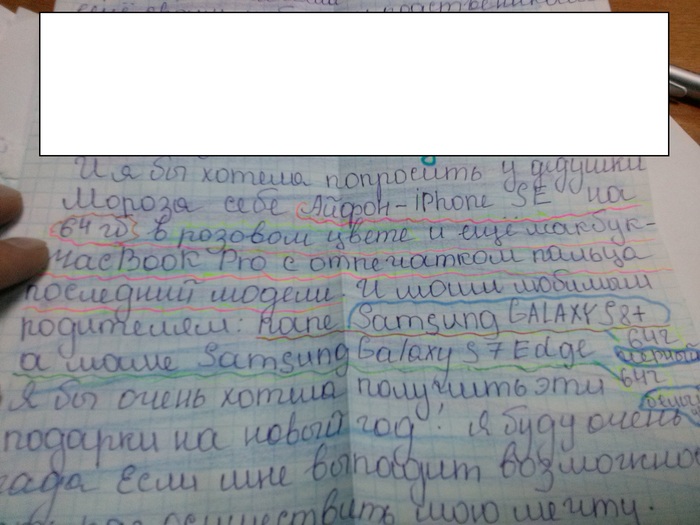 И я бы хотела попросить у дедушки
Мороза себе Айфон-iphone SE на
64 гб в розовом цвете и ещё макбук-
macBook Pro с отпечатком пальца
последний модели. И моим любимым
родителям: папе Samsung GALAXY S8+
64г
а маме Samsung Galaxy S7 Edge
64г
Я бы очень хотела получить эти
подарки на новый год! Я буду очень
рада если мне выпадит
осуществить мою мечту.